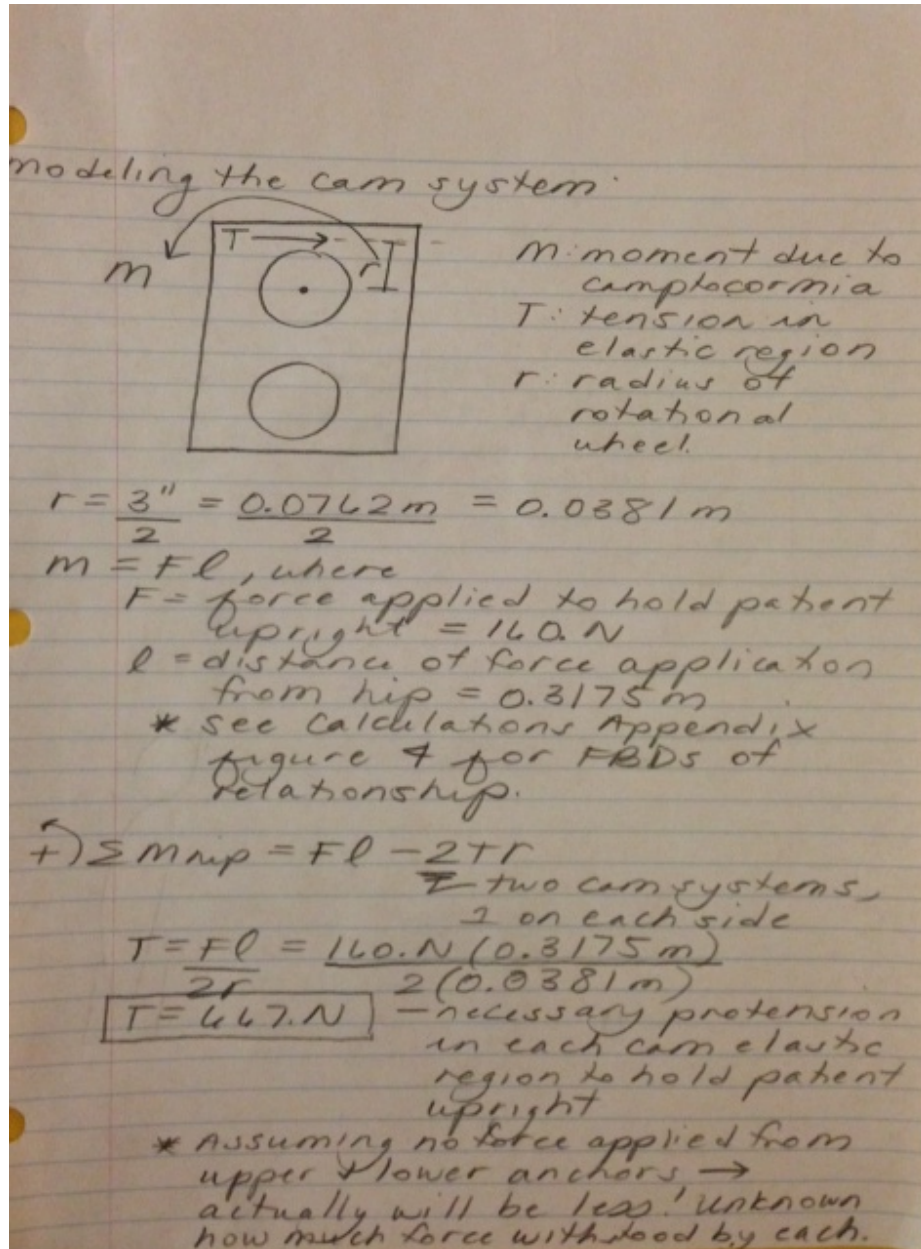 modeling the cam system:
T → r
m
m: moment due to
camptocormia
T: tension in
elastic region
r: radius of
rotational
wheel.
r = 3"/2 = 0.0762m/2 = 0.0381m
m = Fl, where
F = force applied to hold patient
upright = 160. N
l = distance of force application
from hip = 0.3175m
* see Calculations Appendix
figure 4 for FBDs of
relationship.
+) Σ Mhip = Fl - 2Tr
two cam systems,
1 on each side
T = Fl/2r = 160. N (0.3175m)/2(0.0381m)
T = 667. N - necessary pretension
in each cam elastic
region to hold patient
upright
* Assuming no force applied from
upper + lower anchors →
actually will be less! Unknown
how much force withstood by each.